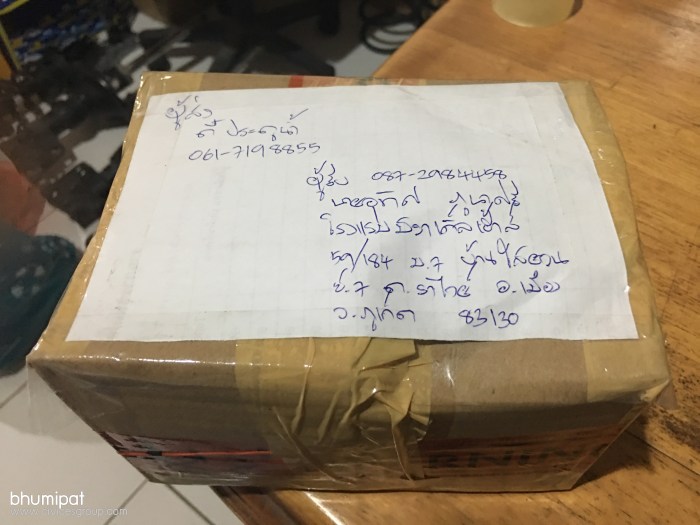 ผู้ส่ง
ตี๋ ประตูน้ำ
061-7198855
ผู้รับ 087-2984458
นายอุทิศ
โรงแรม
59/184 ม.7 บ้านใสยวน
ซ.7 ต.ราไวย์ อ.เมือง
จ.ภูเก็ต 83130
bhumipat